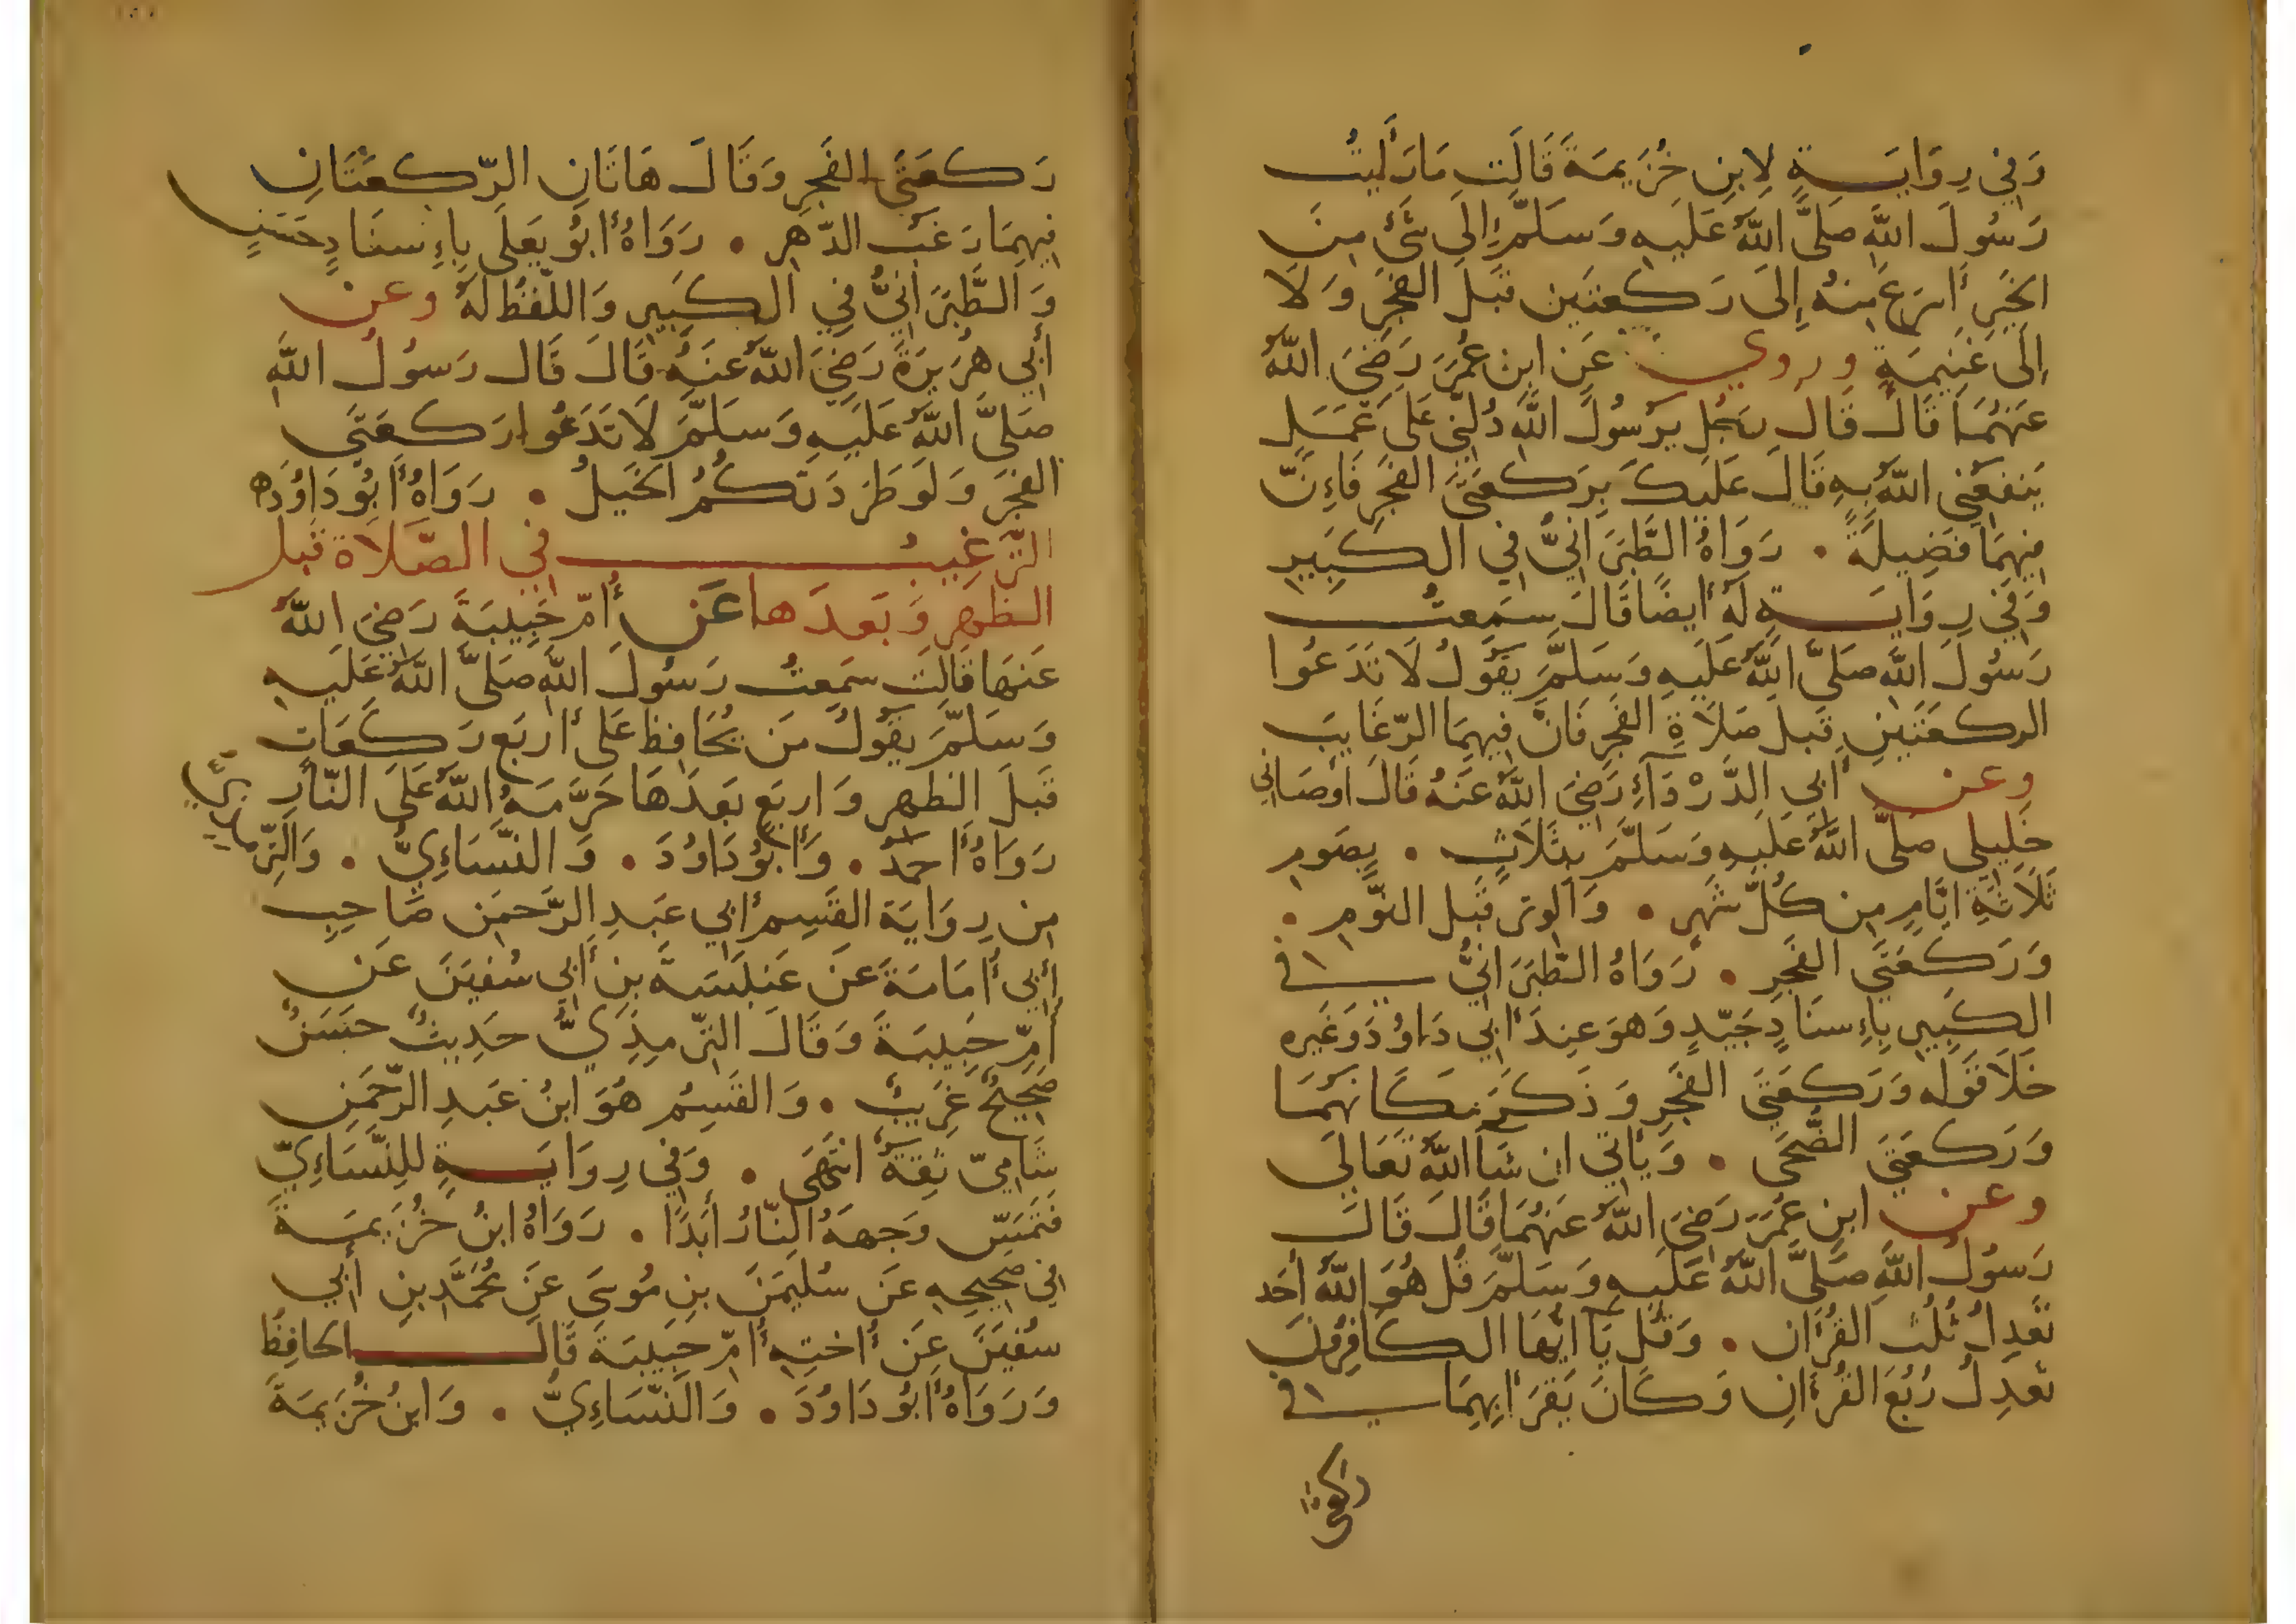 وَفِي رِوَايَةٍ لِابنِ خُزَيمَةَ قَالَت مَا رَأَيتُ
رَسُولَ اللَّهِ صَلَّى اللَّهُ عَلَيهِ وَسَلَّمَ إِلَى شَيْءٍ مِنَ
الخَيرِ أَسرَعَ مِنهُ إِلَى رَكعَتَينِ قَبلَ الفَجرِ وَلَا
إِلَى غَنِيمَةٍ وروي عَن ابنِ عُمَرَ رَضِيَ اللَّهُ
عَنهُمَا قَالَ قَالَ رَجُل يَرَسُولَ اللَّهِ دُلَّنِي عَلَى عَمَلٍ
يَنفَعُنِي اللَّهُ بِهِ قَالَ عَلَيكَ بِرَكعَتَيِ الفَجرِ فَإِنَّ
فِيهِمَا فَضِيلَةً . رَوَاهُ الطَّبَرَانِيُّ فِي الكَبِيرِ
وَفِي رِوَايَةٍ لَهُ أَيضًا قَالَ سَمِعتُ
رَسُولَ اللَّهِ صَلَّى اللَّهُ عَلَيهِ وَسَلَّمَ يَقُولُ لَا تَدَعُوا
الركعَتَينِ قَبلَ صَلَاةِ الفَجرِ فَانَّ فِيهِمَا الرَّغَايِبَ
وعن أَبِي الدَّرْدَآءِ رَضِيَ اللَّهُ عَنهُ قَالَ اوصَانِي
خَلِيلِي صَلَّى اللَّهُ عَلَيهِ وَسَلَّمَ بِثَلَاثٍ . بِصَومِ
ثَلَاثَةِ ايَّامٍ مِن كُلِّ شَهرٍ . وَالوِترِ قَبلَ النَّومِ .
وَرَكعَتَيِ الفَجرِ . رَوَاهُ الطَّبَرَانِيُّ في
الكَبِيرِ بِإِسنَادٍ جَيِّدٍ وَهوَ عِندَ أَبِي دَاوُدَ وَغَيرِه
خَلَا قَولِه وَرَكعَتَيِ الفَجرِ وَذَكَرَ مَكَانَهُمَا
وَرَكعَتَيِ الضُّحَى . وَيَأتِي ان شَا اللَّهُ تَعَالَى
وعن ابنِ عُمَرَ رَضِيَ اللَّهُ عَنهُمَا قَالَ قَالَ
رَسُولُ اللَّهِ صَلَّى اللَّهُ عَلَيهِ وَسَلَّمَ قُل هُوَ اللَّهُ أَحَد
تَعدِلُ ثُلُثَ القُرآنِ . وَقُل يَا ايُّهَا الكَافِرُونَ
تَعدِلُ رُبُعَ القُرآنِ وَكَانَ يَقرَأ بِهِمَا في
ركعتي
رَكعَتَيِ الفَجرِ وَقَالَ هَاتَانِ الرَّكعَتَانِ
فِيهِمَا رَغَبُ الدَّهرِ . رَوَاهُ أَبُو يَعلَى بِإِسنَادٍ حَسَنٍ
وَالطَّبَرَانِيُّ فِي الكَبِيرِ وَاللَّفظُ لَهُ وعن
أَبِي هُرَيرَةَ رَضِيَ اللَّهُ عَنهُ قَالَ قَالَ رَسُولُ اللَّهِ
صَلَّى اللَّهُ عَلَيهِ وَسَلَّمَ لَا تَدَعُوا رَكعَتَيِ
الفَجرِ وَلَو طَرَدَتكُمُ الخَيلُ . رَوَاهُ أَبُو دَاوُدَ ه
التَّرغِيبُ في الصَّلَاةِ قَبلَ
الظهرِ وَبَعدَها عَن أُمِّ حَبِيبَةَ رَضِيَ اللَّهُ
عَنهَا قَالَت سَمِعتُ رَسُولَ اللَّهِ صَلَّى اللَّهُ عَلَيهِ
وَسَلَّمَ يَقُولُ مَن يُحَافِظ عَلَى أَربَعِ رَكَعَاتٍ
قَبلَ الظهرِ وَاربَعٍ بَعدَهَا حَرَّمَهُ اللَّهُ عَلَى النَّارِ
رَوَاهُ أَحمَدُ . وَأَبُو دَاوُدَ . وَالنَّسَاءِيُّ . وَالتِّرمِذِيُّ
مِن رِوَايَةِ القَسِمِ أَبِي عَبدِ الرَّحمَنِ صَاحِبِ
أَبِي أُمَامَةَ عَن عَنبَسَةَ بنِ أَبِي سُفيَنَ عَن
أُمِّ حَبِيبَةَ وَقَالَ التِّرمِذِيُّ حَدِيثٌ حَسَنٌ
صَحِيحٌ غَرِيبٌ . وَالقَسِمُ هُوَ ابنُ عَبدِ الرَّحمَنِ
شَامِيّ ثِقَةٌ انتَهَى . وَفِي رِوَايَةٍ لِلنَّسَاءِيِّ
فَتَمَسّ وَجهَهُ النَّارُ أَبَدًا . رَوَاهُ ابنُ خُزَيمَةَ
فِي صَحِيحِهِ عَن سُلَيمَنَ بنِ مُوسَى عَن مُحَمَّدِ بنِ أَبِي
سُفيَنَ عَن أُختِهِ أُمِّ حَبِيبَةَ قَالَ الحَافِظُ
وَرَوَاهُ أَبُو دَاوُدَ . وَالنَّسَاءِيُّ . وَابنُ خُزَيمَةَ